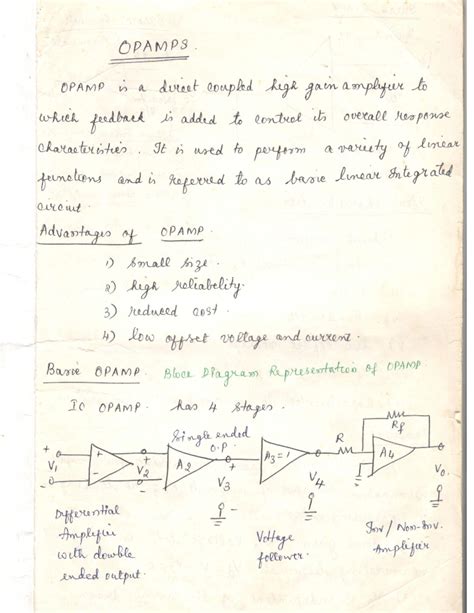 OPAMPS.
OPAMP is a direct coupled high gain amplifier to
which feedback is added to control its overall response
characteristics. It is used to perform a variety of linear
functions and is referred to as basic linear Integrated
circuit.
Advantages of OPAMP.
1) small size.
2) high reliability.
3) reduced cost.
4) low offset voltage and current.
Basic OPAMP. Block Diagram Representation of OPAMP.
IC OPAMP. has 4 stages.
Single ended
O.P.
R
Rf
+
V1
-
+
-
+
V2
-
A2
+
V3
-
A3=1
V4
A4
Vo
Differential
Amplifier
with double
ended output.
Voltage
follower.
Inv/Non-Inv.
Amplifier